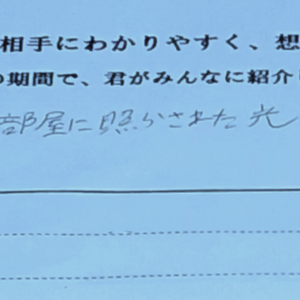 相手にわかりやすく、想
の期間で、君がみんなに紹介
部屋に照らされた光